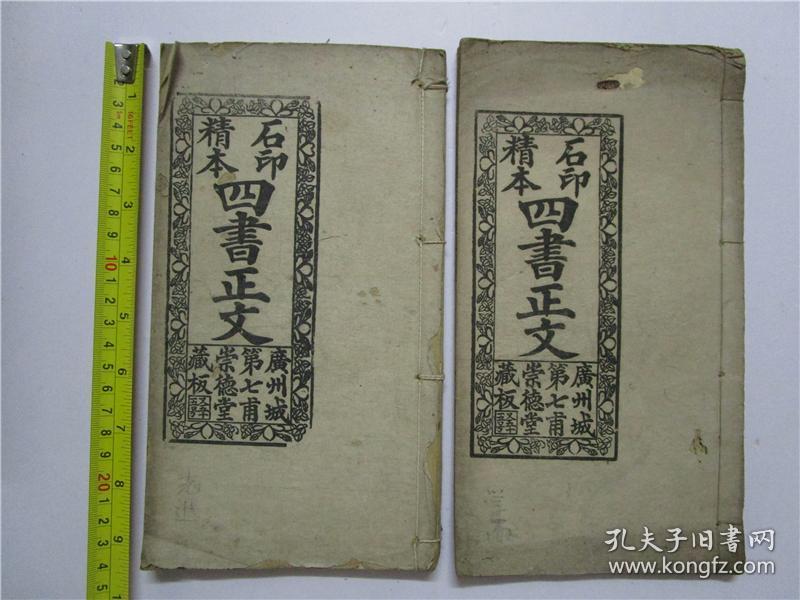 石印
精本
四書正文
廣州城
第七甫
崇德堂
藏板
石印
精本
四書正文
廣州城
第七甫
崇德堂
藏板
孔夫子旧书网
www.kongfz.com